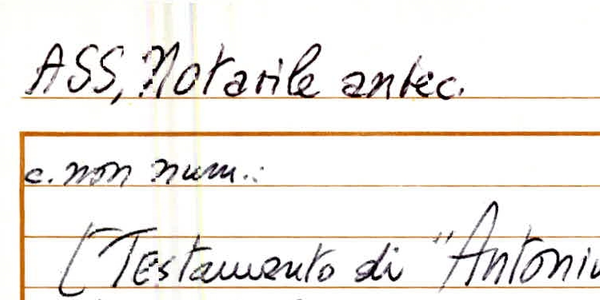 ASS, Notarile antec.
c. non num.:
[Testamento di "Antoniu